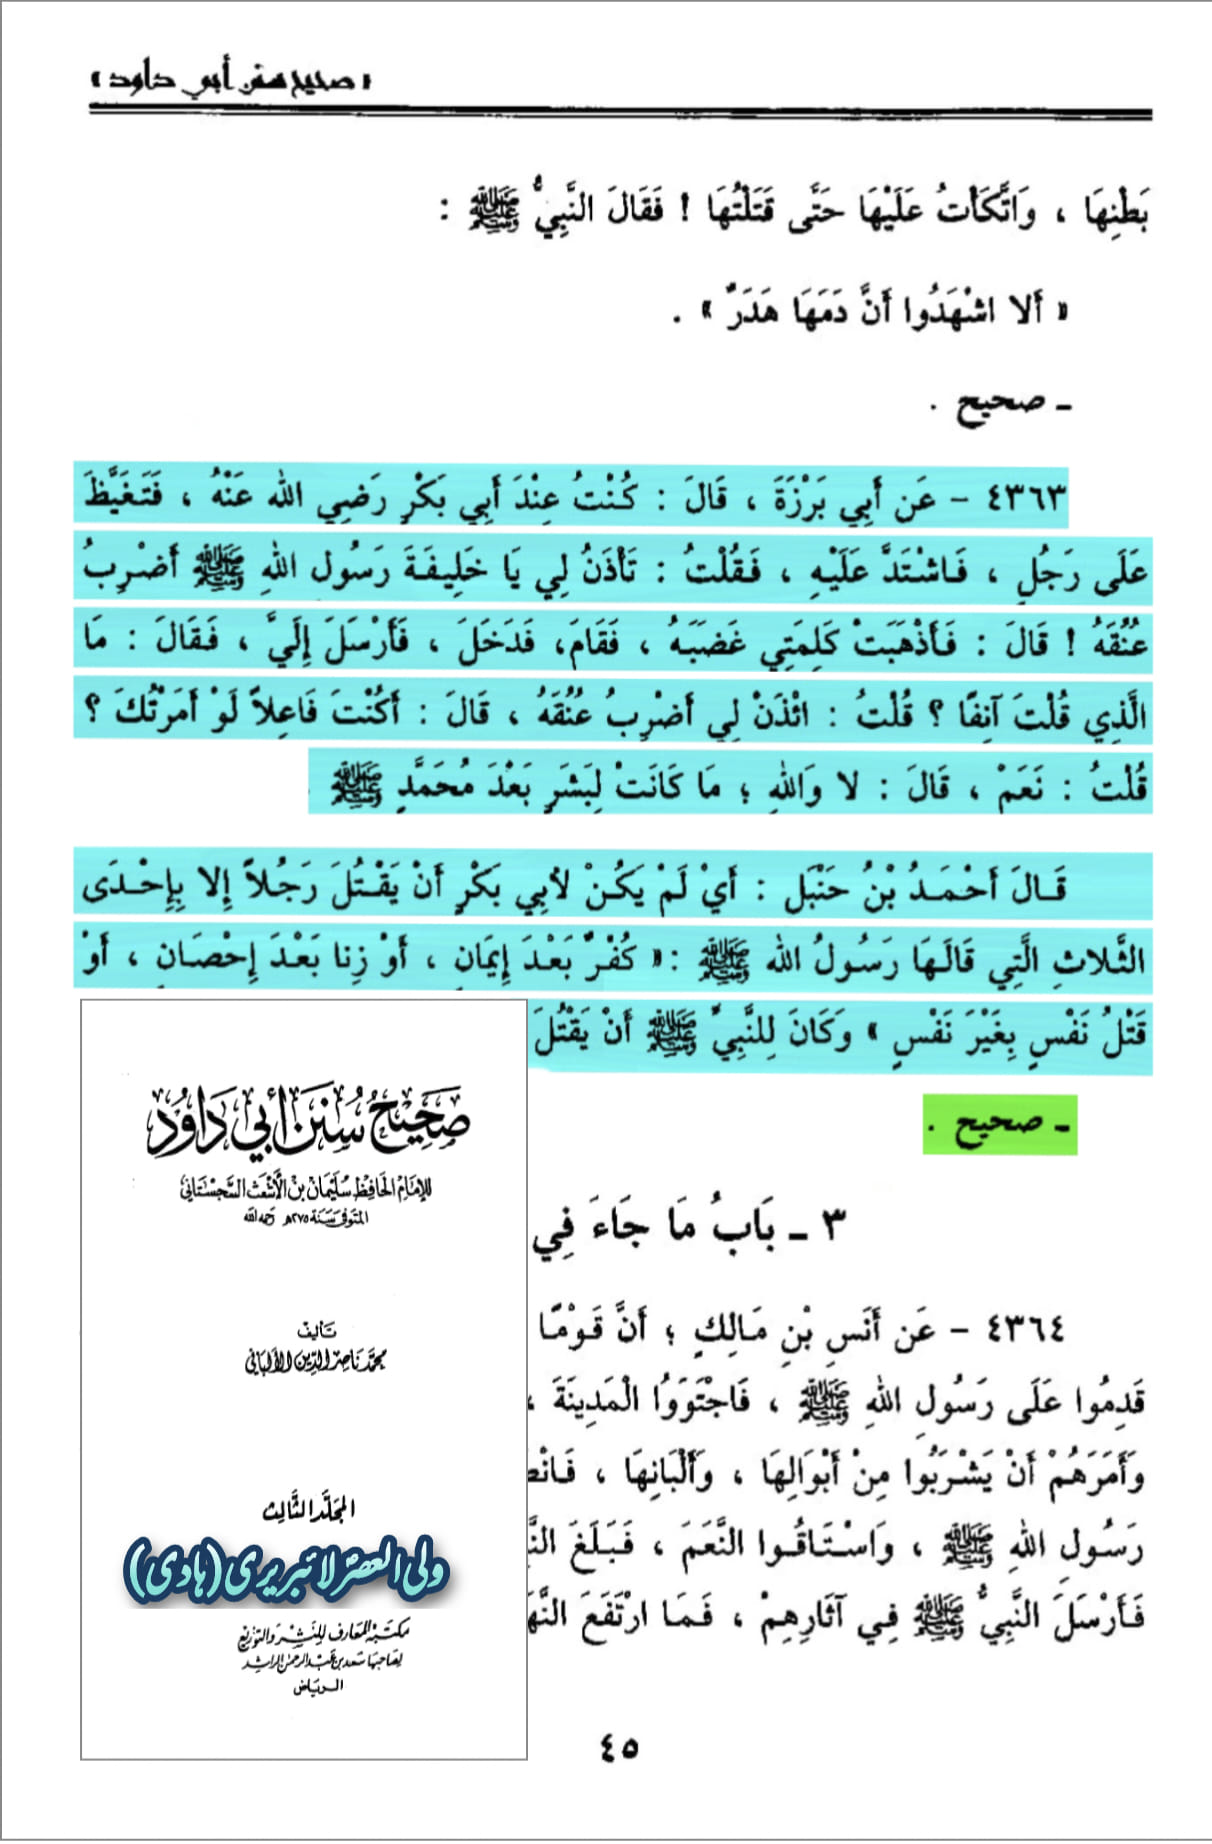 « صحيح سنن أبي داود »
بَطْنِهَا ، وَاتَّكَأْتُ عَلَيْهَا حَتَّى قَتَلْتُهَا ! فَقَالَ النَّبِيُّ ﷺ :
« أَلا اشْهَدُوا أَنَّ دَمَهَا هَدَرٌ » .
ـ صحيح .
٤٣٦٣ - عَن أَبِي بَرْزَةَ ، قَالَ : كُنْتُ عِنْدَ أَبِي بَكْرٍ رَضِي الله عَنْهُ ، فَتَغَيَّظَ
عَلَى رَجُلٍ ، فَاشْتَدَّ عَلَيْهِ ، فَقُلْتُ : تَأْذَنُ لِي يَا خَلِيفَةَ رَسُولِ اللهِ ﷺ أَضْرِبُ
عُنُقَهُ ! قَالَ : فَأَذْهَبَتْ كَلِمَتِي غَضَبَهُ ، فَقَامَ، فَدَخَلَ ، فَأَرْسَلَ إِلَيَّ ، فَقَالَ : مَا
الَّذِي قُلْتَ آنِفًا ؟ قُلْتُ : ائْذَنْ لِي أَضْرِبُ عُنُقَهُ ، قَالَ : أَكُنْتَ فَاعِلاً لَوْ أَمَرْتُكَ ؟
قُلْتُ : نَعَمْ ، قَالَ : لا وَاللهِ ؛ مَا كَانَتْ لِبَشَرٍ بَعْدَ مُحَمَّدٍ ﷺ
قَالَ أَحْمَدُ بْنُ حَنْبَل : أَيْ لَمْ يَكُنْ لأَبِي بَكْرٍ أَنْ يَقْتُلَ رَجُلاً إِلا بِإِحْدَى
الثَّلاثِ الَّتِي قَالَهَا رَسُولُ الله ﷺ :« كُفْرٌ بَعْدَ إِيمَانٍ ، أَوْ زِنا بَعْدَ إِحْصَانٍ ، أَوْ
قَتْلُ نَفْسٍ بِغَيْرَ نَفْسٍ » وَكَانَ لِلنَّبِيِّ ﷺ أَنْ يَقْتُلَ
ـ صحيح .
٣ ـ بَابُ مَا جَاءَ فِي
٤٣٦٤ - عَن أَنَسِ بْنِ مَالِكٍ ؛ أَنَّ قَوْمًا
قَدِمُوا عَلَى رَسُولِ اللهِ ﷺ ، فَاجْتَوَوُا الْمَدِينَةَ ،
وَأَمَرَهُمْ أَنْ يَشْرَبُوا مِنْ أَبْوَالِهَا ، وَأَلْبَانِهَا ،
رَسُولِ اللهِ ﷺ ، وَاسْتَاقُوا النَّعَمَ ، فَبَلَغَ
فَأَرْسَلَ النَّبِيُّ ﷺ فِي آثَارِهِمْ ، فَمَا ارْتَفَعَ
صَحِيحُ سُنَنِ أَبِي دَاوُد
للإمَامِ الحَافِظِ سُلَيْمَانَ بْنِ الأَشْعَثِ السِّجِسْتَانِيِّ
المتوفى سَنَة ٢٧٥هـ رحمه الله
تأليف
محمَّد نَاصِر الدِّين الألبَاني
المجَلَّد الثَّالِث
ولى العصر لا تبریری (هادی)
مكتبة المعارف للنَّشِر والتوزيع
لِصَاحِبهَا سَعد بن عَبْد الرحمن الراشِد
الريَاض
٤٥